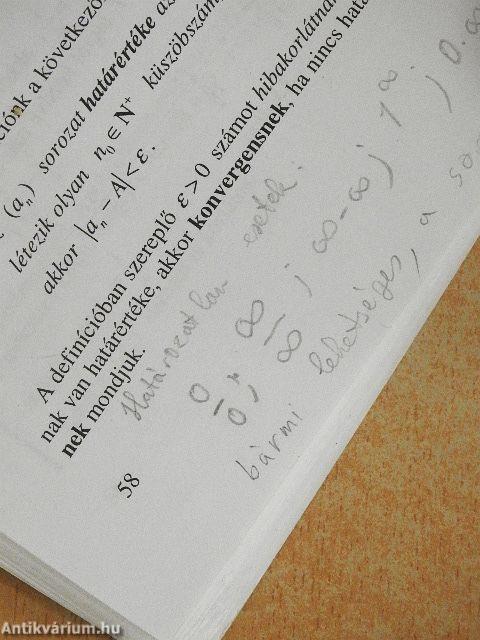 ciónk a következő
(aₙ) sorozat határértéke az
létezik olyan n₀ ∈ N⁺ küszöbszám
akkor |aₙ − A| < ε.
A definícióban szereplő ε > 0 számot hibakorlátnak
nak van határértéke, akkor konvergensnek, ha nincs hatá
nek mondjuk.
Határozatlan esetek:
0/0; ∞/∞; ∞−∞; 1^∞; 0·∞
bármi lehetséges, a so
58
Antikvárium.hu